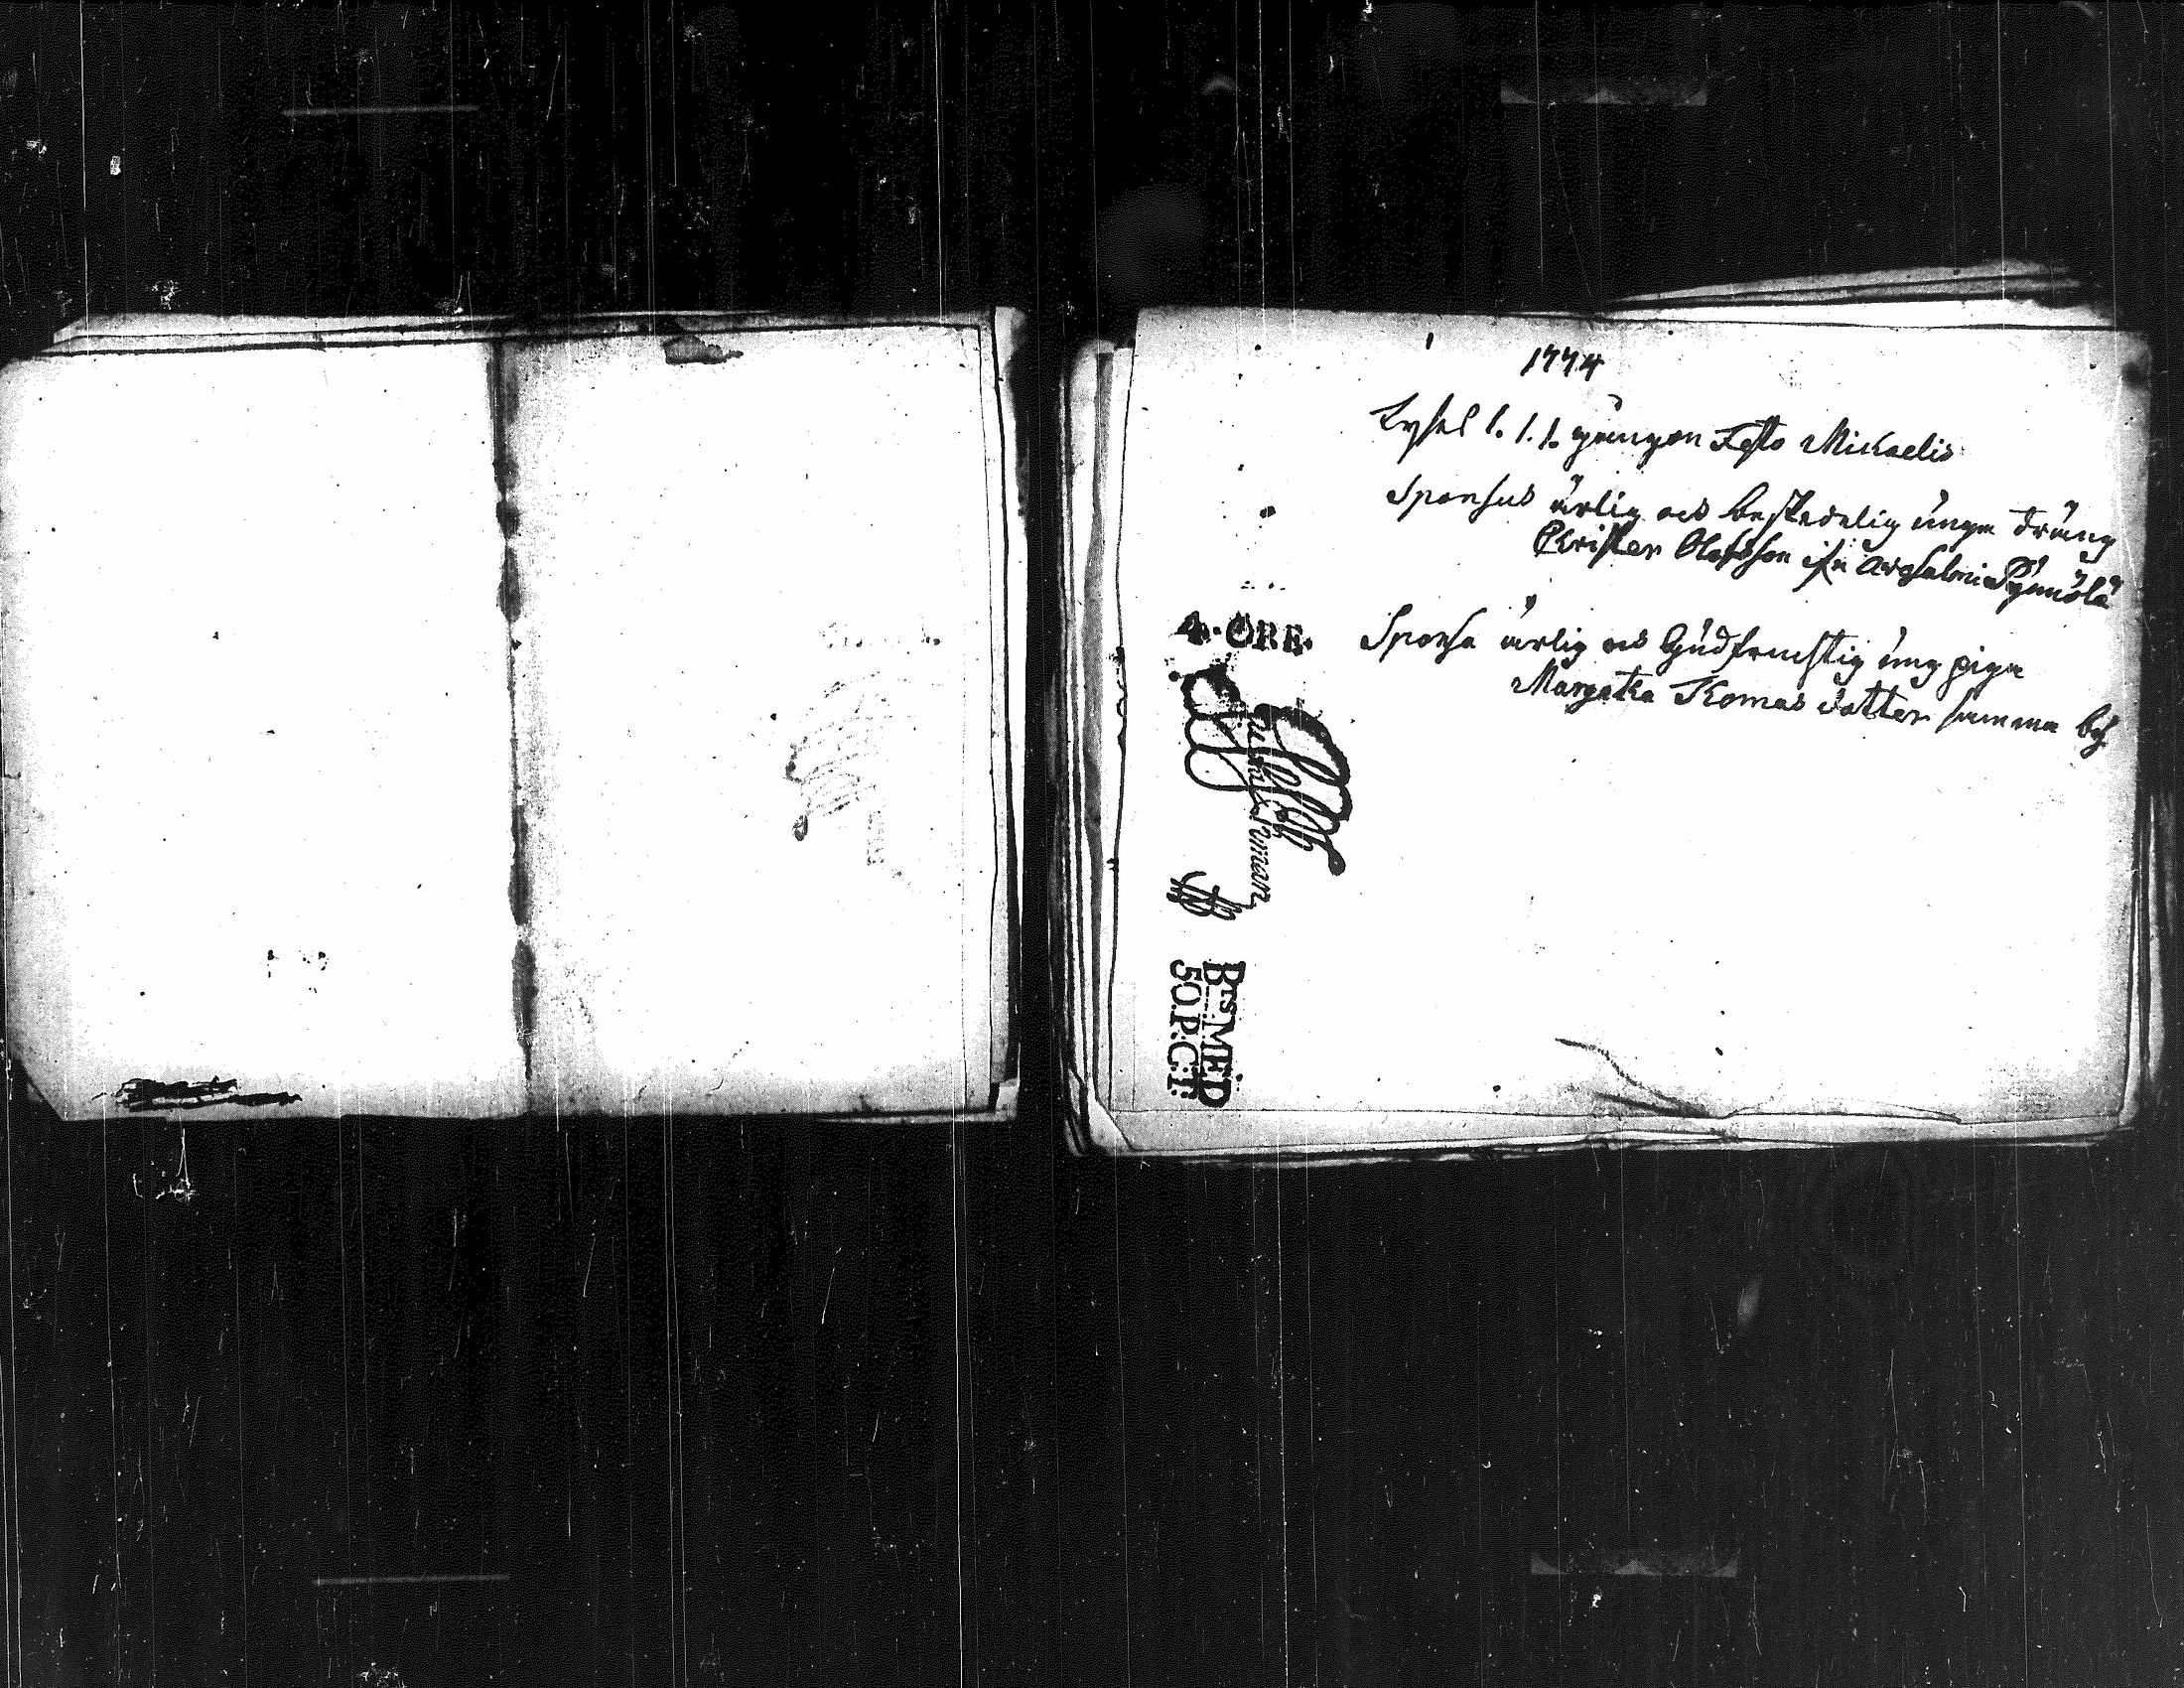 1774
Lyses 1. 1. 1. gången Festo Mickaelis
Sponsus ärlig ock beskedelig unga dräng
Christer Olofsson ifrå
Sponsa ärlig ock Gudfruchtig ung piga
Margeta Tomas dotter samma by
4. ÖRE.
BTS MED
50. P: C: T: